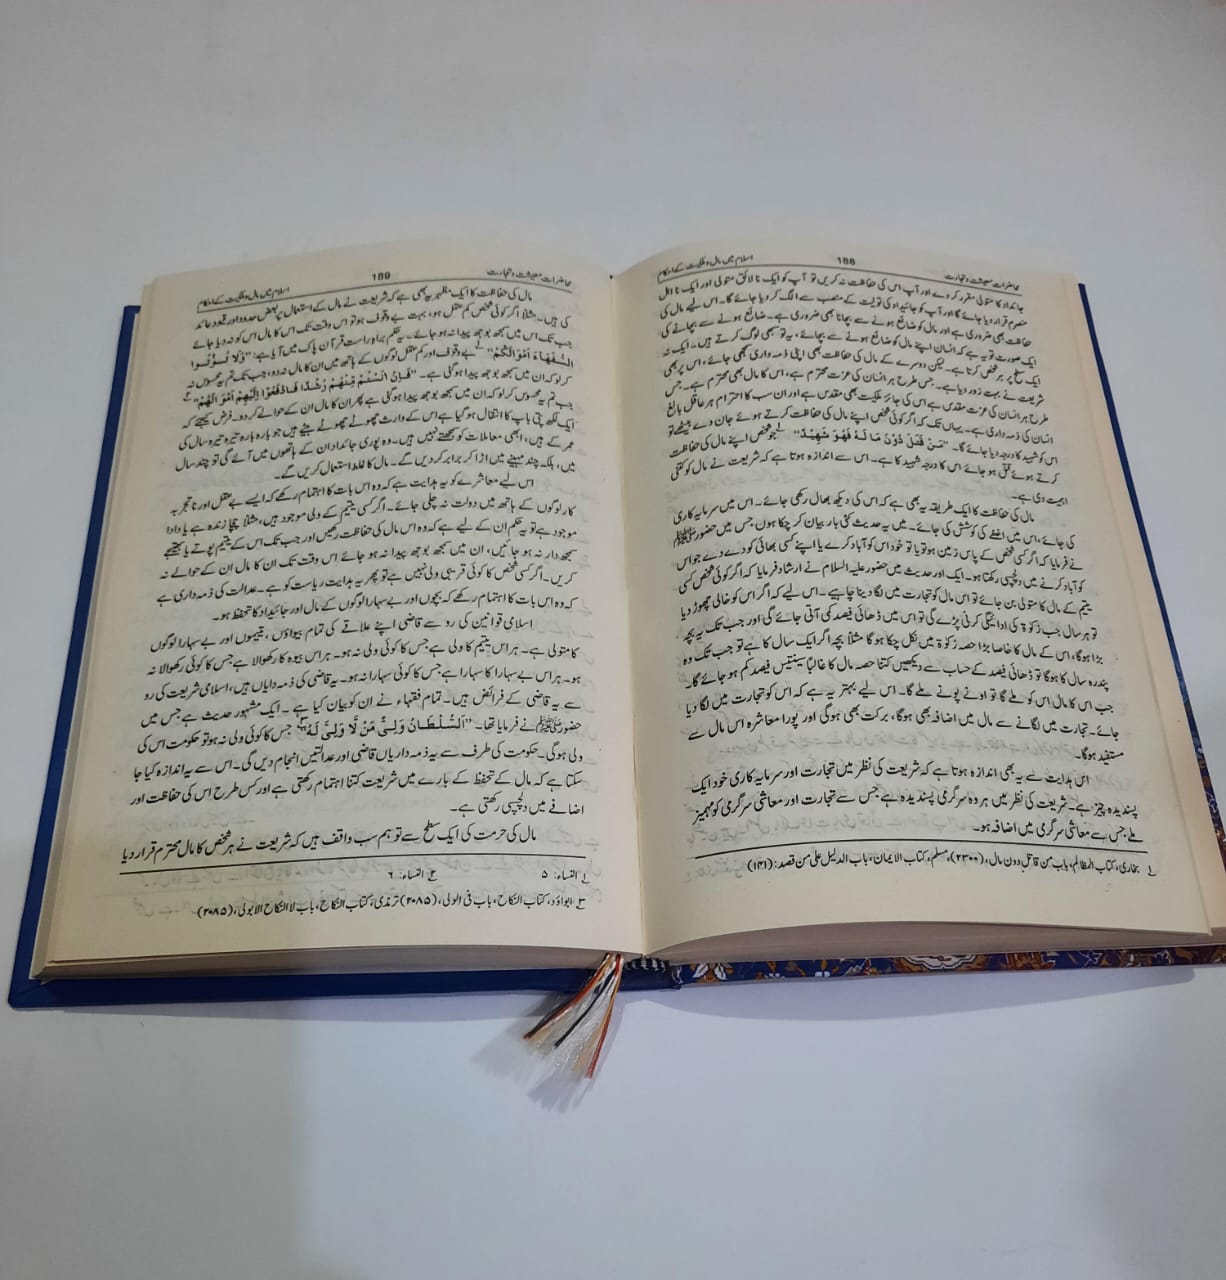 محاضرات معیشت و تجارت 188 اسلام میں مال و ملکیت کے احکام
جائداد کا متولی مقرر کر دے اور آپ اس کی حفاظت نہ کریں تو آپ کو ایک نالائق متولی اور ایک نااہل
منصرم قرار دیا جائے گا اور آپ کو جائیداد کی تولیت کے منصب سے الگ کر دیا جائے گا۔ اس لیے مال کی
حفاظت بھی ضروری ہے اور مال کو ضائع ہونے سے بچانا بھی ضروری ہے۔ ضائع ہونے سے بچانے کی
ایک صورت تو یہ ہے کہ انسان اپنے مال کو ضائع ہونے سے بچائے، یہ تو سبھی لوگ کرتے ہیں۔ ایک نہ
ایک سطح پر ہر شخص کرتا ہے۔ لیکن دوسرے کے مال کی حفاظت بھی اپنی ذمہ داری سمجھی جائے، اس پر بھی
شریعت نے بہت زور دیا ہے۔ جس طرح ہر انسان کی عزت محترم ہے، اس کا مال بھی محترم ہے۔ جس
طرح ہر انسان کی عزت مقدس ہے اس کی جائز ملکیت بھی مقدس ہے اور ان سب کا احترام ہر عاقل بالغ
انسان کی ذمہ داری ہے۔ یہاں تک کہ اگر کوئی شخص اپنے مال کی حفاظت کرتے ہوئے جان دے بیٹھے تو
اس کو شہید کا درجہ دیا جائے گا۔ ”مَنْ قُتِلَ دُوْنَ مَالِهٖ فَهُوَ شَهِیْدٌ“ ۱؎ جو شخص اپنے مال کی حفاظت
کرتے ہوئے قتل ہو جائے اس کا درجہ شہید کا ہے۔ اس سے اندازہ ہوتا ہے کہ شریعت نے مال کو کتنی
اہمیت دی ہے۔
مال کی حفاظت کا ایک طریقہ یہ بھی ہے کہ اس کی دیکھ بھال رکھی جائے۔ اس میں سرمایہ کاری
کی جائے، اس میں اضافے کی کوشش کی جائے۔ میں یہ حدیث کئی بار بیان کر چکا ہوں جس میں حضور ﷺ
نے فرمایا کہ اگر کسی شخص کے پاس زمین ہو تو یا تو خود اس کو آباد کرے یا اپنے کسی بھائی کو دے دے جو اس
کو آباد کرنے میں دلچسپی رکھتا ہو۔ ایک اور حدیث میں حضور علیہ السلام نے ارشاد فرمایا کہ اگر کوئی شخص کسی
یتیم کے مال کا متولی بن جائے تو اس مال کو تجارت میں لگا دینا چاہیے۔ اس لیے کہ اگر اس کو خالی چھوڑ دیا
تو ہر سال جب زکوٰۃ کی ادائیگی کرنی پڑے گی تو اس میں ڈھائی فیصد کمی آتی جائے گی اور جب تک یہ بچہ
بڑا ہو گا، اس کے مال کا خاصا بڑا حصہ زکوٰۃ میں نکل چکا ہو گا مثلاً بچہ اگر ایک سال کا ہے تو جب تک وہ
پندرہ سال کا ہو گا تو ڈھائی فیصد کے حساب سے دیکھیں کتنا حصہ مال کا غالباً سینتیس فیصد کم ہو جائے گا۔
جب اس کا مال اس کو ملے گا تو اونے پونے ملے گا۔ اس لیے بہتر یہ ہے کہ اس کو تجارت میں لگا دیا
جائے۔ تجارت میں لگانے سے مال میں اضافہ بھی ہو گا، برکت بھی ہو گی اور پورا معاشرہ اس مال سے
مستفید ہو گا۔
اس ہدایت سے یہ بھی اندازہ ہوتا ہے کہ شریعت کی نظر میں تجارت اور سرمایہ کاری خود ایک
پسندیدہ چیز ہے۔ شریعت کی نظر میں ہر وہ سرگرمی پسندیدہ ہے جس سے تجارت اور معاشی سرگرمی کو مہمیز
ملے جس سے معاشی سرگرمی میں اضافہ ہو۔
۱؎ بخاری، کتاب المظالم، باب من قاتل دون مالہ، (۲۳۰۰)، مسلم، کتاب الایمان، باب الدلیل علی من قصد: (۱۴۱)
محاضرات معیشت و تجارت 189 اسلام میں مال و ملکیت کے احکام
مال کی حفاظت کا ایک مظہر یہ بھی ہے کہ شریعت نے مال کے استعمال پر بعض حدود اور قیود عائد
کی ہیں۔ مثلاً اگر کوئی شخص کم عقل ہو، بہت بے وقوف ہو تو اس وقت تک اس کا مال اس کو نہ دیا جائے
جب تک اس میں سمجھ بوجھ پیدا نہ ہو جائے۔ یہ حکم براہ راست قرآن پاک میں آیا ہے: ”وَلَا تُؤْتُوا
السُّفَهَاءَ أَمْوَالَكُمْ“ ۱؎ بے وقوف اور کم عقل لوگوں کے ہاتھ میں ان کا مال نہ دو، جب تک تم یہ محسوس نہ
کر لو کہ ان میں سمجھ بوجھ پیدا ہو گئی ہے۔ ”فَإِنْ اٰنَسْتُمْ مِّنْهُمْ رُشْدًا فَادْفَعُوْا اِلَیْهِمْ اَمْوَالَهُمْ“ ۲؎
جب تم یہ محسوس کر لو کہ ان میں سمجھ بوجھ پیدا ہو گئی ہے پھر ان کا مال ان کے حوالے کر دو۔ فرض کیجئے کہ
ایک لکھ پتی باپ کا انتقال ہو گیا ہے اس کے وارث چھوٹے چھوٹے بچے ہیں جو بارہ بارہ تیرہ تیرہ سال کی
عمر کے ہیں، ابھی معاملات کو سمجھتے نہیں ہیں۔ وہ پوری جائداد ان کے ہاتھوں میں آئے گی تو چند سال
میں، بلکہ چند مہینے میں اڑا کر برابر کر دیں گے۔ مال کا غلط استعمال کریں گے۔
اس لیے معاشرے کو یہ ہدایت ہے کہ وہ اس بات کا اہتمام رکھے کہ ایسے بے عقل اور ناتجربہ
کار لوگوں کے ہاتھ میں دولت نہ چلی جائے۔ اگر کسی یتیم کے ولی موجود ہیں، مثلاً چچا زندہ ہے یا دادا
موجود ہے تو یہ حکم ان کے لیے ہے کہ وہ اس مال کی حفاظت رکھیں اور جب تک اس کے یتیم پوتے یا بھتیجے
سمجھ دار نہ ہو جائیں، ان میں سمجھ بوجھ پیدا نہ ہو جائے اس وقت تک ان کا مال ان کے حوالے نہ
کریں۔ اگر کسی شخص کا کوئی قریبی ولی نہیں ہے تو پھر یہ ہدایت ریاست کو ہے۔ عدالت کی ذمہ داری ہے
کہ وہ اس بات کا اہتمام رکھے کہ بچوں اور بے سہارا لوگوں کے مال اور جائیداد کا تحفظ ہو۔
اسلامی قوانین کی رو سے قاضی اپنے علاقے کی تمام بیواؤں، یتیموں اور بے سہارا لوگوں
کا متولی ہے۔ ہر اس یتیم کا ولی ہے جس کا کوئی ولی نہ ہو۔ ہر اس بیوہ کا رکھوالا ہے جس کا کوئی رکھوالا نہ
ہو۔ ہر اس بے سہارا کا سہارا ہے جس کا کوئی سہارا نہ ہو۔ یہ قاضی کی ذمہ داریاں ہیں، اسلامی شریعت کی رو
سے یہ قاضی کے فرائض ہیں۔ تمام فقہاء نے ان کو بیان کیا ہے۔ ایک مشہور حدیث ہے جس میں
حضور ﷺ نے فرمایا تھا۔ ”اَلسُّلْطَانُ وَلِیُّ مَنْ لَّا وَلِیَّ لَهٗ“ ۳؎ جس کا کوئی ولی نہ ہو تو حکومت اس کی
ولی ہو گی۔ حکومت کی طرف سے یہ ذمہ داریاں قاضی اور عدالتیں انجام دیں گی۔ اس سے یہ اندازہ کیا جا
سکتا ہے کہ مال کے تحفظ کے بارے میں شریعت کتنا اہتمام رکھتی ہے اور کس طرح اس کی حفاظت اور
اضافے میں دلچسپی رکھتی ہے۔
مال کی حرمت کی ایک سطح سے تو ہم سب واقف ہیں کہ شریعت نے ہر شخص کا مال محترم قرار دیا
۱؎ النساء: ۵ ۲؎ النساء: ۶
۳؎ ابوداؤد، کتاب النکاح، باب فی الولی، (۲۰۸۵) ترمذی، کتاب النکاح، باب لا النکاح الا بولی، (۲۰۸۵)